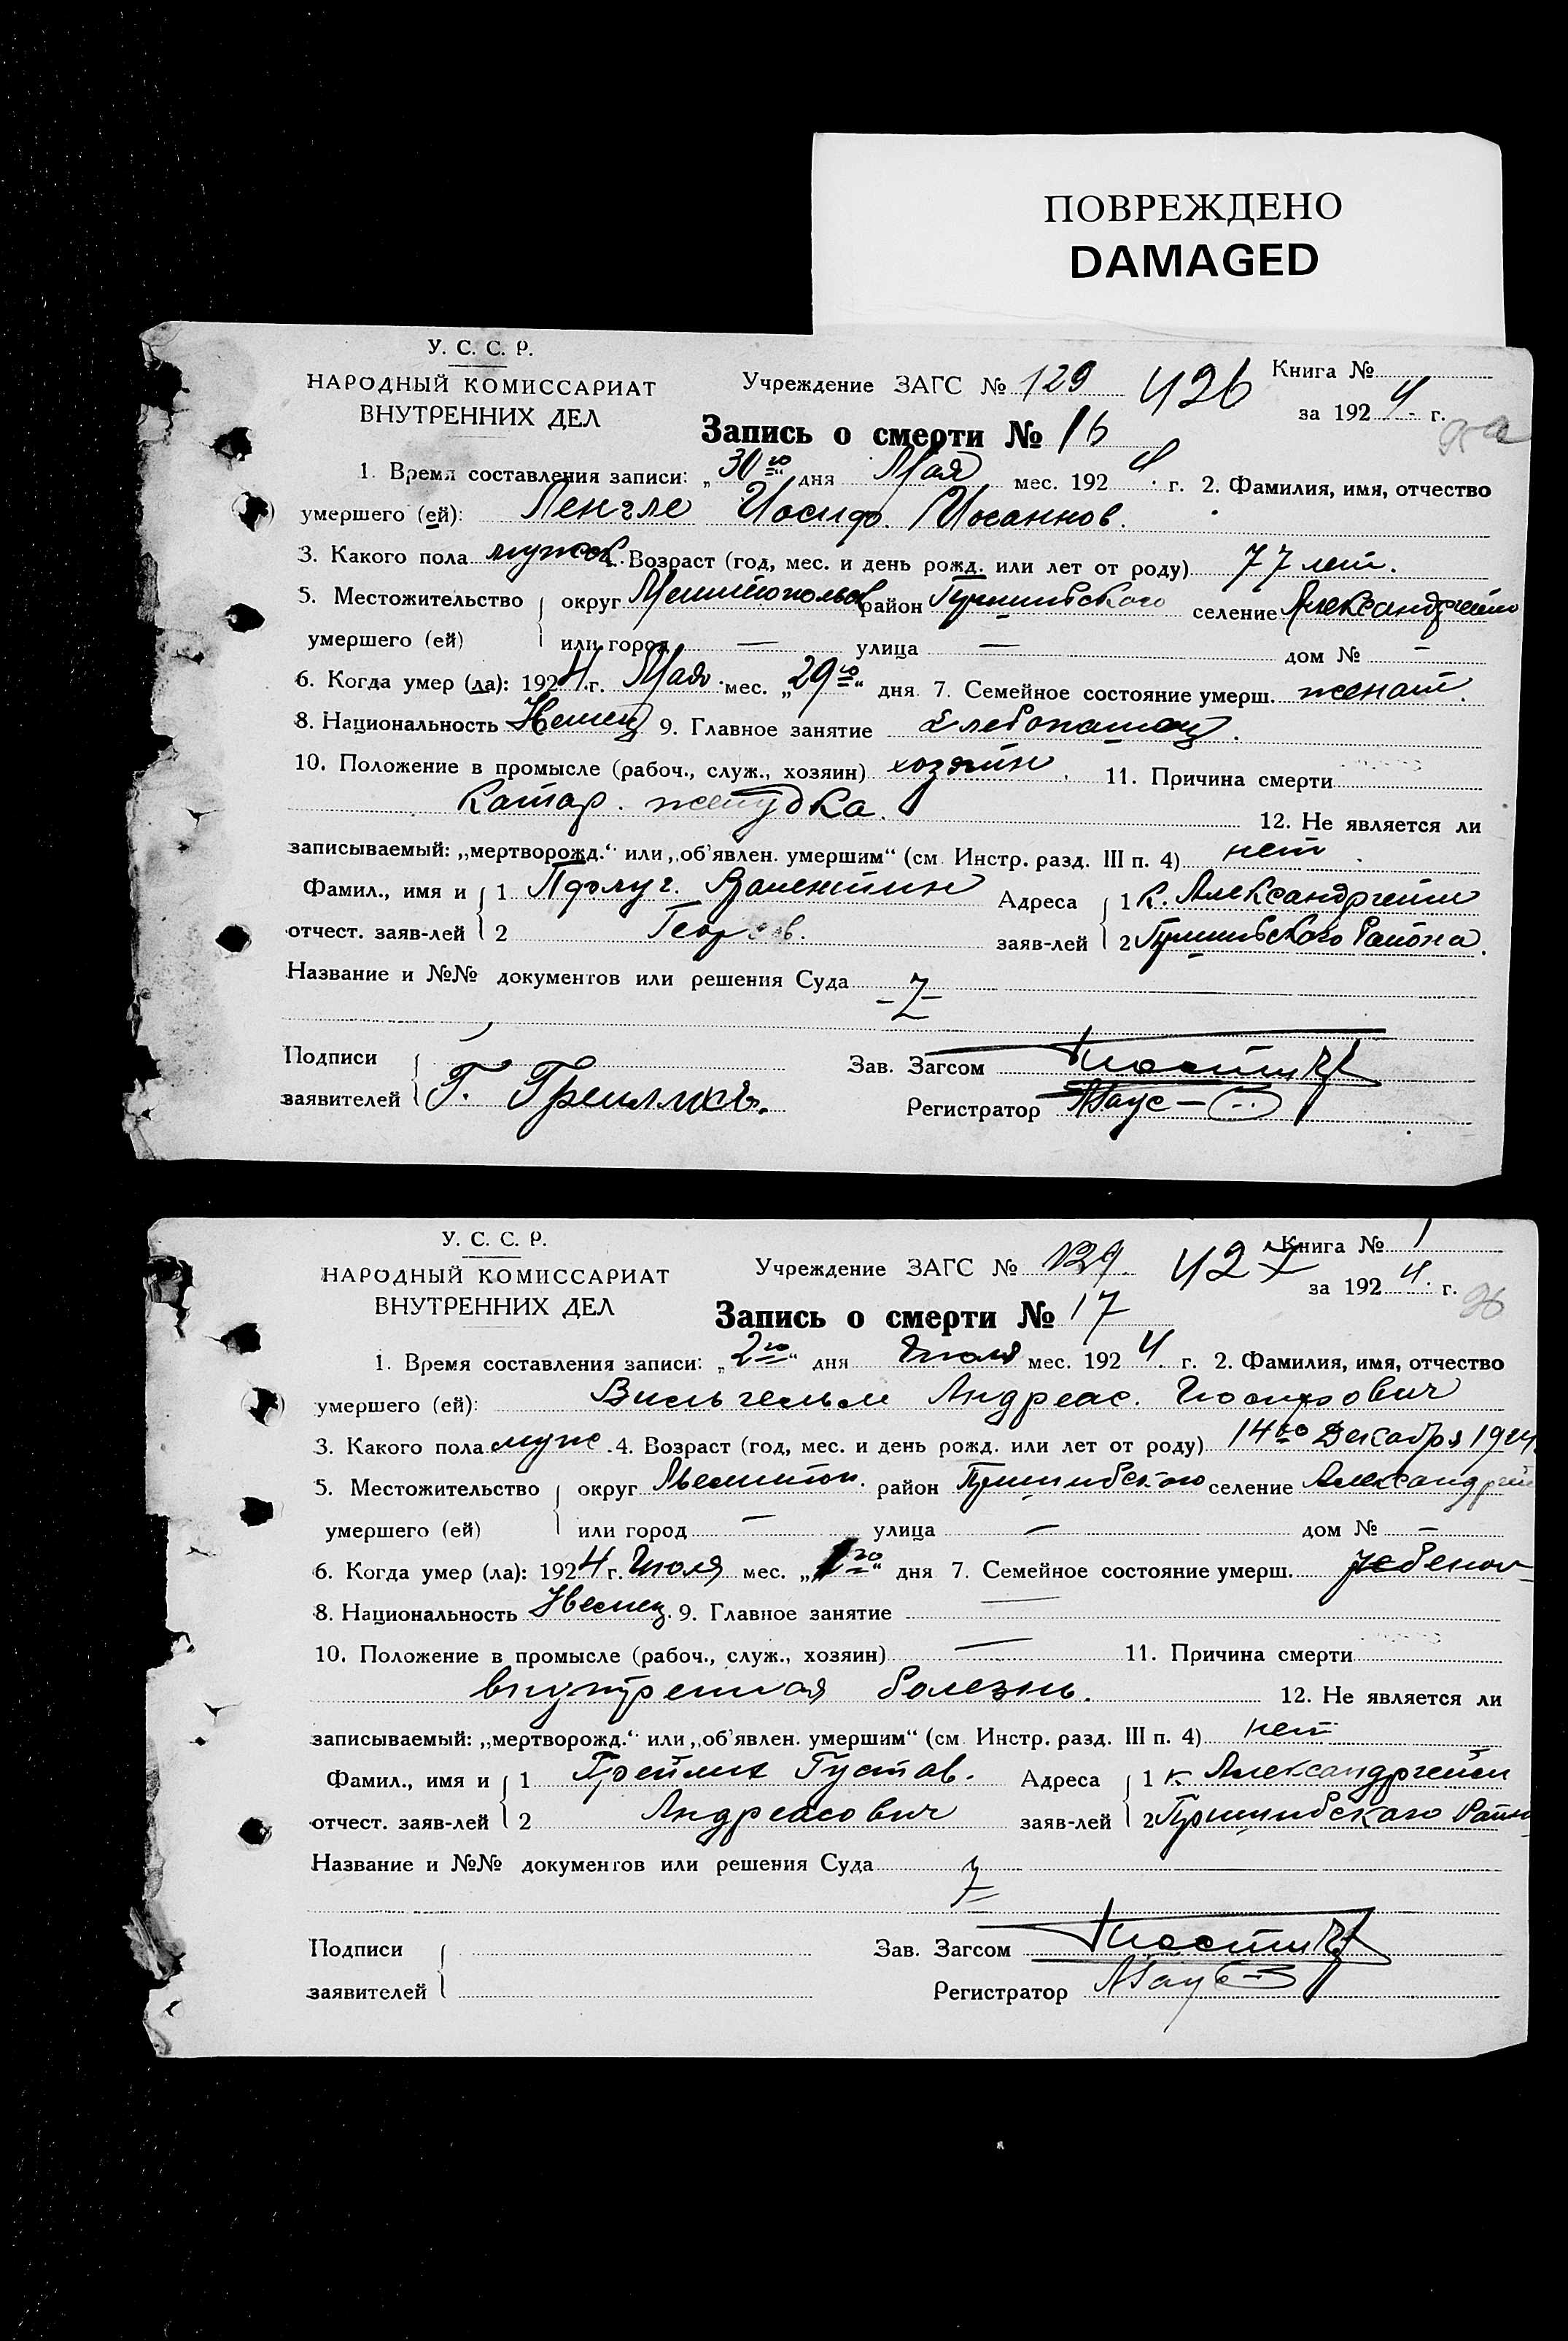 ПОВРЕЖДЕНО
DAMAGED
У. С. С. Р.
НАРОДНЫЙ КОМИССАРИАТ
ВНУТРЕННИХ ДЕЛ
Учреждение ЗАГС № 129 426 Книга №
за 1924 г.
Запись о смерти № 16
1. Время составления записи: „30го“ дня Мая мес. 1924 г. 2. Фамилия, имя, отчество
умершего (ей): Ленгле Иосиф. Иоганнов.
3. Какого пола мужск. 4. Возраст (год, мес. и день рожд. или лет от роду) 77 лет.
5. Местожительство округ Мелитопольск район Пришибского селение Александргейм
умершего (ей) или город — улица — дом № —
6. Когда умер (ла): 1924 г. Мая мес. „29го“ дня 7. Семейное состояние умерш. женат.
8. Национальность Немец 9. Главное занятие Хлебопашец.
10. Положение в промысле (рабоч., служ., хозяин) хозяин. 11. Причина смерти
Катар. желудка. 12. Не является ли
записываемый: „мертворожд.“ или „об'явлен. умершим“ (см Инстр. разд. III п. 4) нет.
Фамил., имя и 1 Пфлуг. Валентин Адреса 1 к. Александргейм
отчест. заяв-лей 2 Георгев. заяв-лей 2 Пришибского Района.
Название и №№ документов или решения Суда
Подписи Зав. Загсом
заявителей Г. Грейлихъ. Регистратор
У. С. С. Р.
НАРОДНЫЙ КОМИССАРИАТ
ВНУТРЕННИХ ДЕЛ
Учреждение ЗАГС № 129 427 Книга № 1
за 1924 г. 96
Запись о смерти № 17
1. Время составления записи: „2го“ дня Июля мес. 1924 г. 2. Фамилия, имя, отчество
умершего (ей): Вильгельм Андреас. Иосифович
3. Какого пола муж. 4. Возраст (год, мес. и день рожд. или лет от роду) 14го Декабря
5. Местожительство округ Мелитоп. район Пришибского селение Александргейм
умершего (ей) или город — улица — дом № —
6. Когда умер (ла): 1924 г. Июля мес. „1го“ дня 7. Семейное состояние умерш. ребенок
8. Национальность Немец. 9. Главное занятие —
10. Положение в промысле (рабоч., служ., хозяин) — 11. Причина смерти
внутренная болезнь. 12. Не является ли
записываемый: „мертворожд.“ или „об'явлен. умершим“ (см Инстр. разд. III п. 4) нет
Фамил., имя и 1 Грейлих Густав. Адреса 1 к. Александргейм
отчест. заяв-лей 2 Андреасович заяв-лей 2 Пришибского Район
Название и №№ документов или решения Суда
Подписи Зав. Загсом
заявителей Регистратор